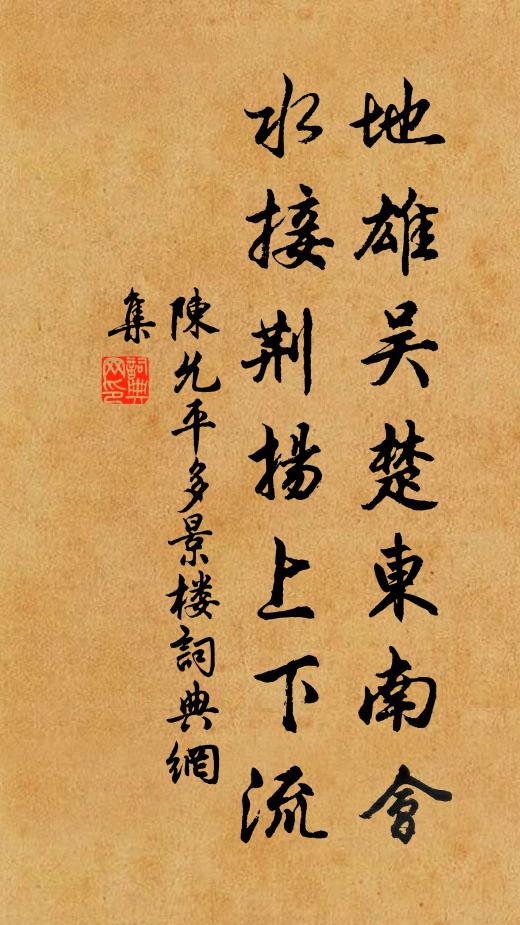 地雄吴楚東南會
水接荆揚上下流
陳允平多景楼詞典網
集
詞典
网印